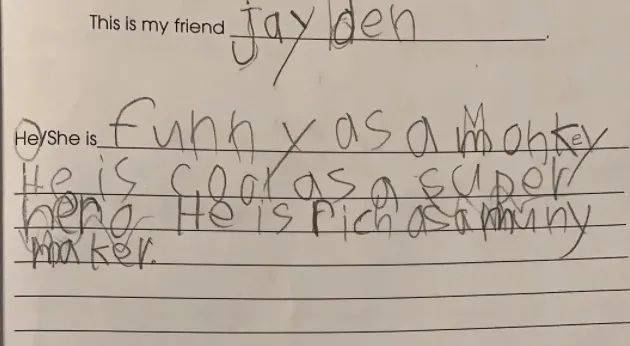 This is my friend jayden.
He/She is funny as a Monkey
He is cool as a super
hero He is rich as a muny
maker.